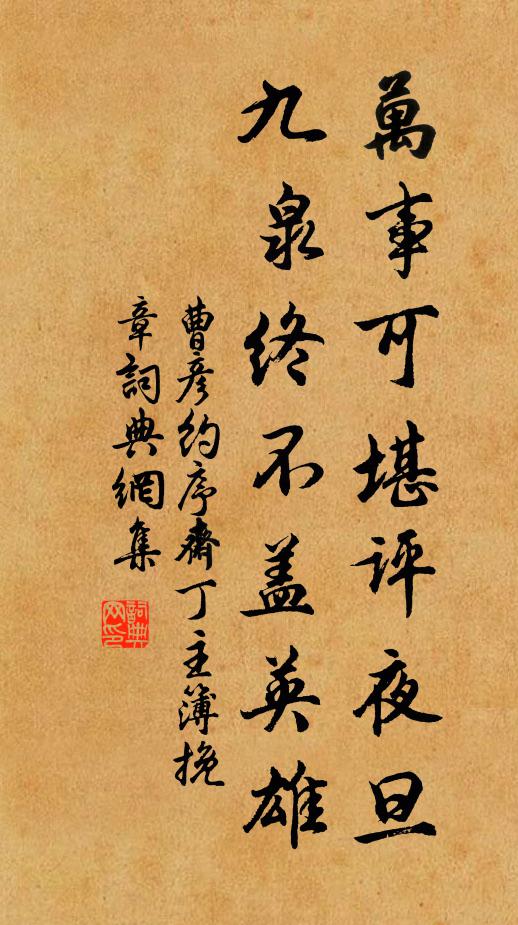 萬事可堪評夜旦
九泉終不盖英雄
曹彦約序齋丁主簿挽
章詞典網集
詞典
网印